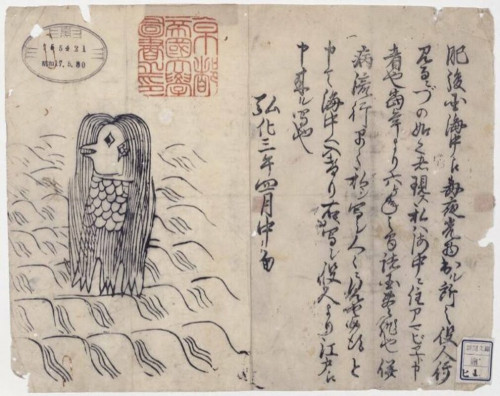 肥後国海中え毎夜光物出ル所之役人行
見るニづの如く者現ス私ハ海中ニ住アマビヱト申
者也當年より六ヶ年之間諸国豊作也併
病流行早々私ヲ写シ人々ニ見セ候得と
申て海中へ入けり右写シ役人より江戸え
申来ル写也
弘化三年四月中旬
京都
帝國大學
圖書之印